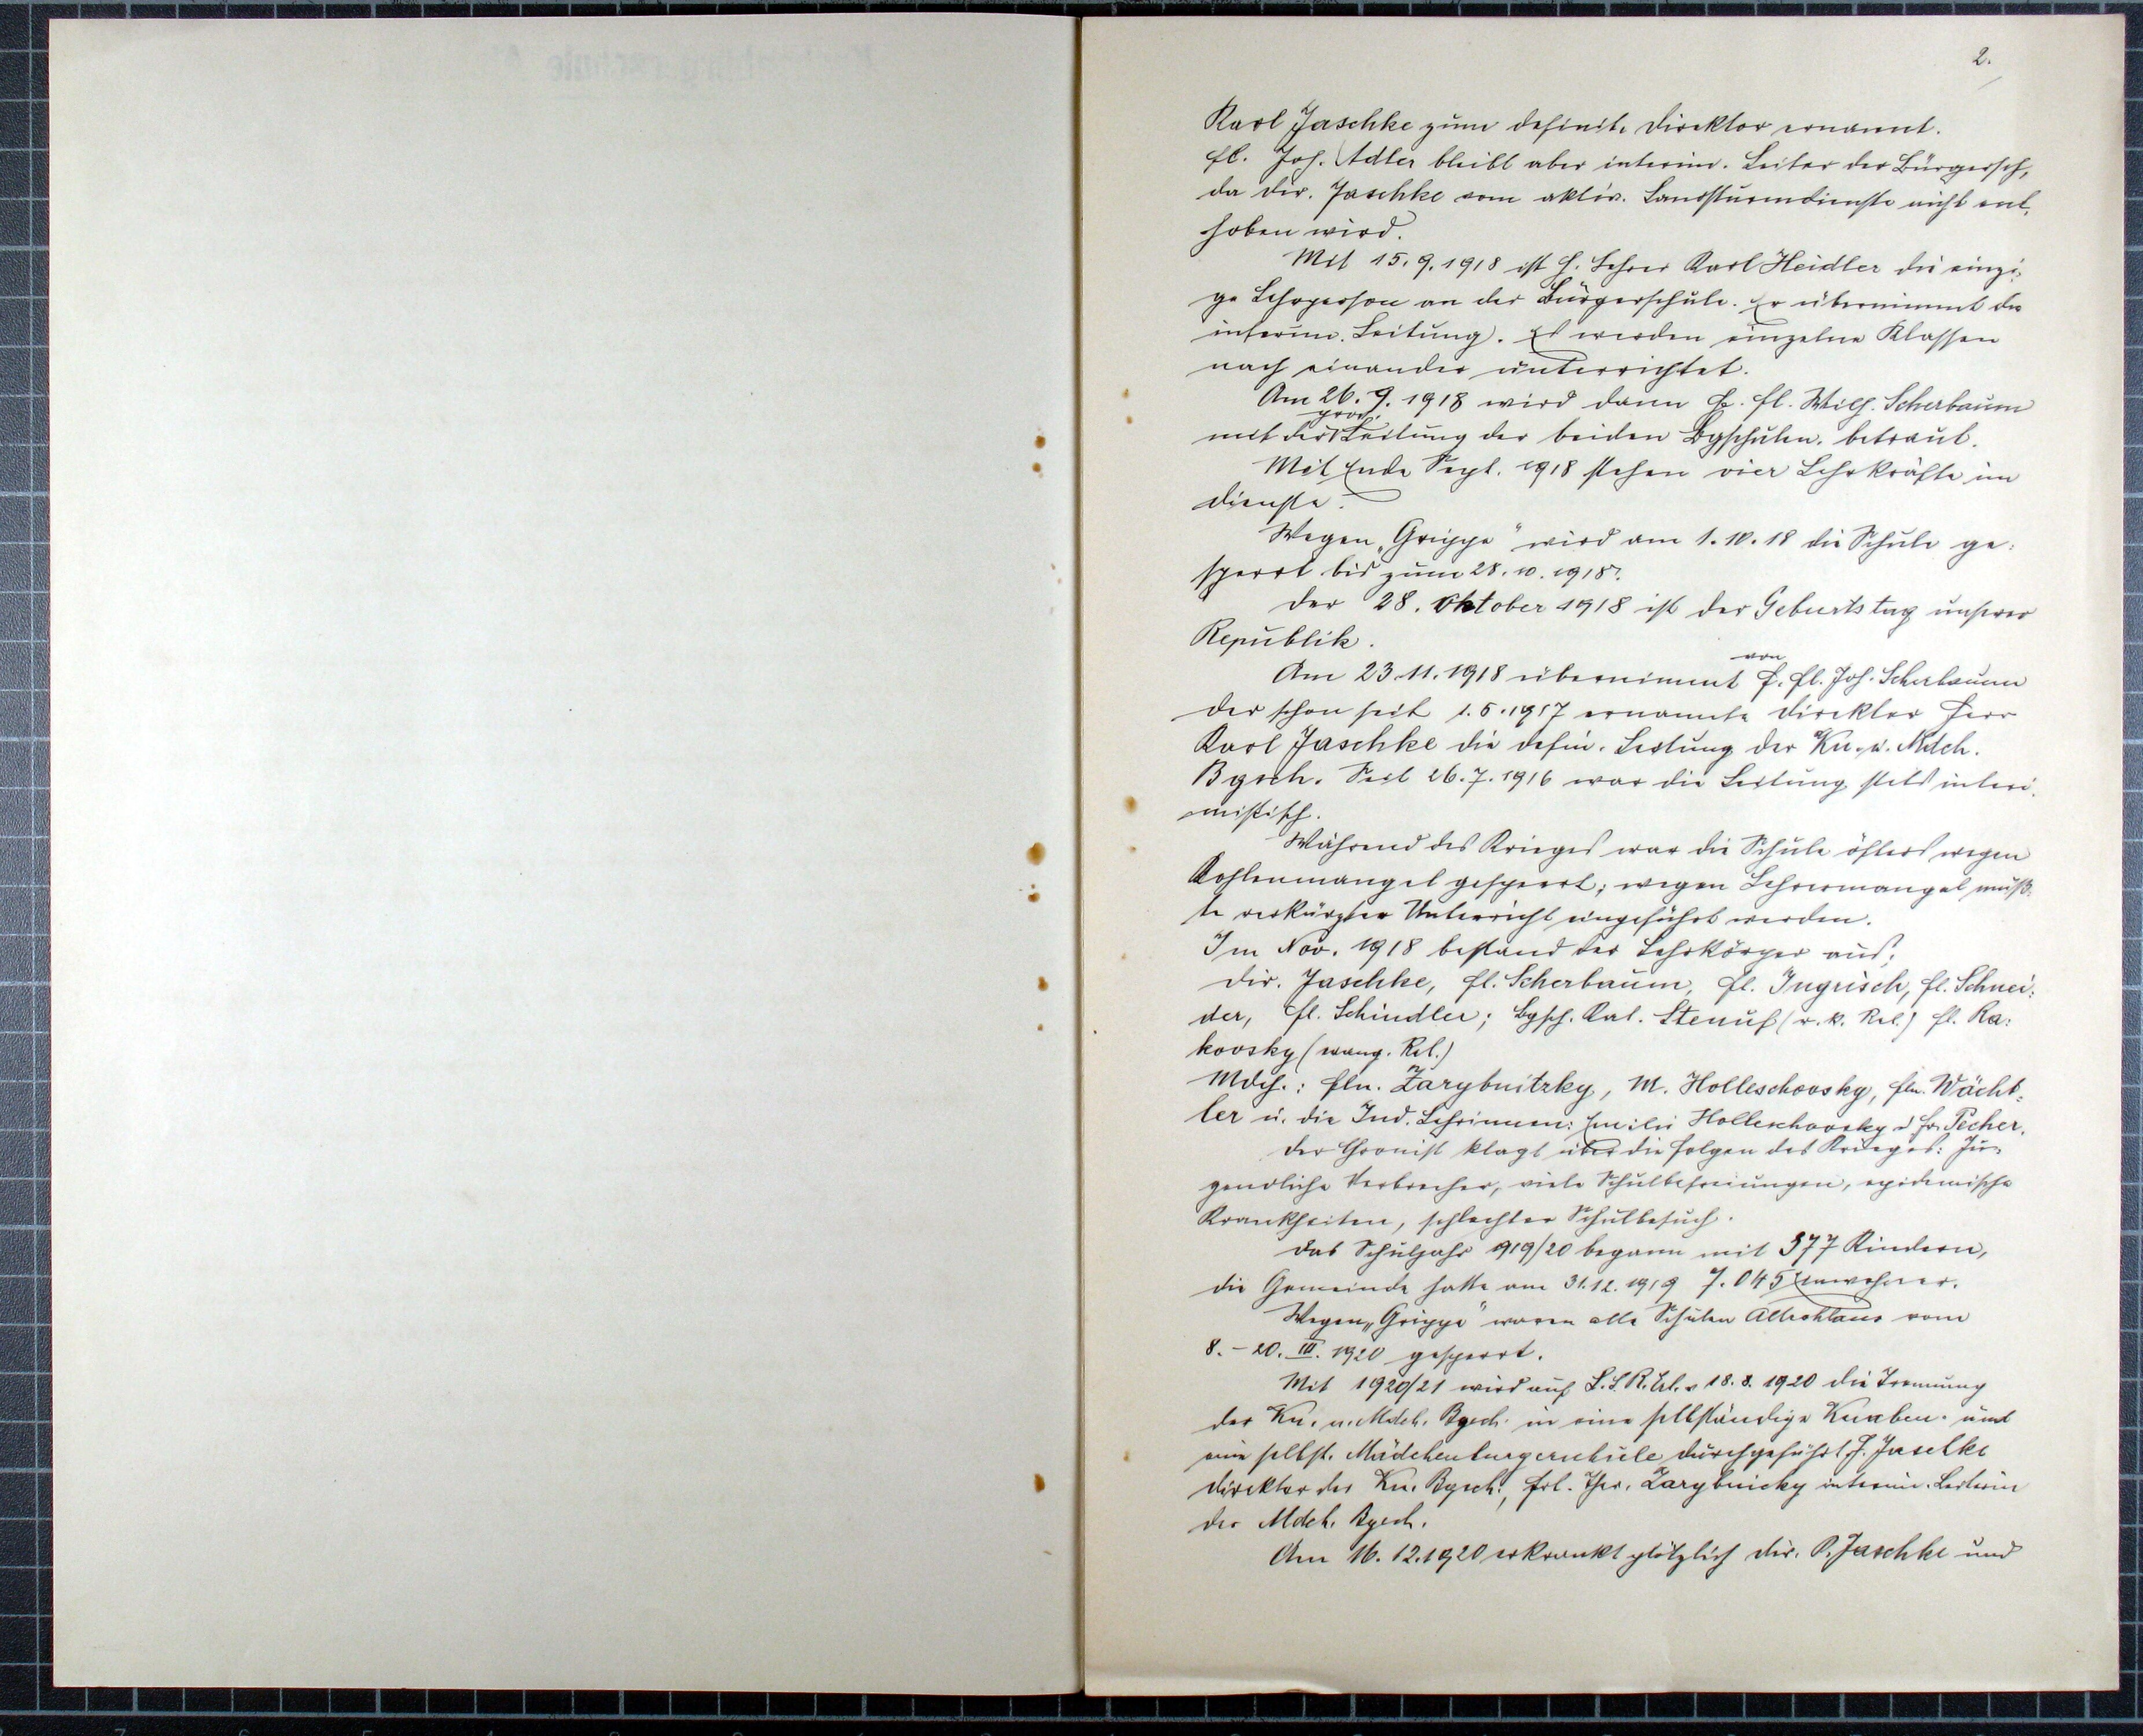 2.
Karl Jaschke zum definit. Direktor ernannt.
Fl. Joh. Adler bleibt aber interim. Leiter der Bürgersch,
da Dir. Jaschke vom aktiv. Landsturmdienste nicht ent,
hoben wird.
Mit 15.9.1918 ist H. Lehrer Karl Heidler die einzi:
ge Lehrperson an der Bürgerschule. Er übernimmt die
interim. Leitung. Es werden einzelne Klassen
nach einander unterrichtet.
Am 26.9.1918 wird dann H. Fl. Wilh. Scherbaum
prov.
mit der Leitung der beiden Bgschulen. betraut.
Mit Ende Sept. 1918 stehen vier Lehrkräfte im
Dienste.
Wegen „Grippe" wird am 1.10.18 die Schule ge:
sperrt bis zum 28.10.1918.
Der 28. Oktober 1918 ist der Geburtstag unserer
Republik.
von
Am 23.11.1918 übernimmt H. Fl. Joh. Scherbaum
der schon seit 1.5.1917 ernannte Direktor Herr
Karl Jaschke die defin. Leitung der Kn. u. Mdch.
Bgsch. Seit 26.7.1916 war die Leitung stets interi,
mistisch.
Während des Krieges war die Schule öfters wegen
Kohlenmangel gesperrt; wegen Lehrermangel muß:
te verkürzter Unterricht eingeführt werden.
Im Nov. 1918 bestand der Lehrkörper aus:
Dir. Jaschke, Fl. Scherbaum, Fl. Ingrisch, Fl. Schnei:
der, Fl. Schindler; Bgsch. Kat. Stenuf (r. k. Rel.) Fl. Ra:
kovsky (evang. Rel.)
Mdch.: Fln. Zarybnitzky, M. Holleschovsky, Fln. Wächt:
ler u. die Ind. Lehrinnen: Emilie Holleschovsky u Fr. Pecher.
Der Chronist klagt über die Folgen des Krieges: Ju:
gendliche Verbrecher, viele Schulbefreiungen, epidemische
Krankheiten, schlechter Schulbesuch.
Das Schuljahr 919/20 begann mit 377 Kindern,
die Gemeinde hatte am 31.12.1919 7.045 Einwohner.
Wegen „Grippe" waren alle Schulen Altrohlaus vom
8. – 20. III. 1920 gesperrt.
Mit 1920/21 wird auf L.S.R. Erl. v 18.8.1920 die Trennung
der Kn. u. Mdch. Bgsch. in eine selbständige Knaben- und
eine selbst. Mädchenbürgerschule durchgeführt. H. Jaschke
Direktor der Kn. Bgsch., Frl. Ther. Zarybnicky interim. Leiterin
der Mdch. Bgsch.
Am 16.12.1920 erkrankt plötzlich Dir. K. Jaschke und